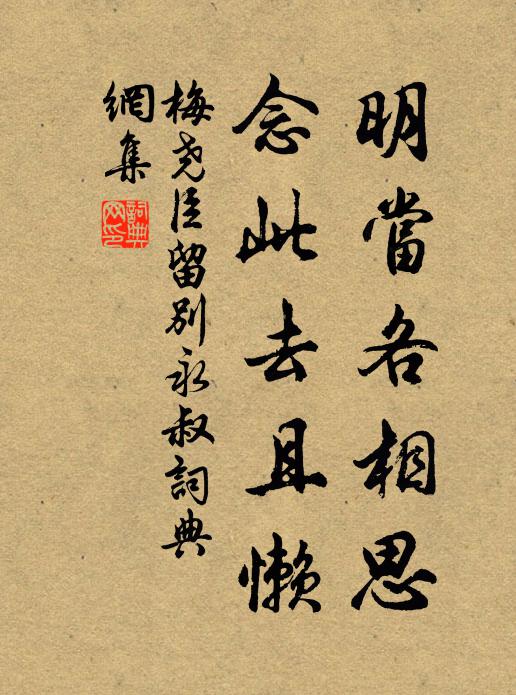 明當各相思
念此去且懶
梅尧臣留别永叔詞典
網集
詞典
网印